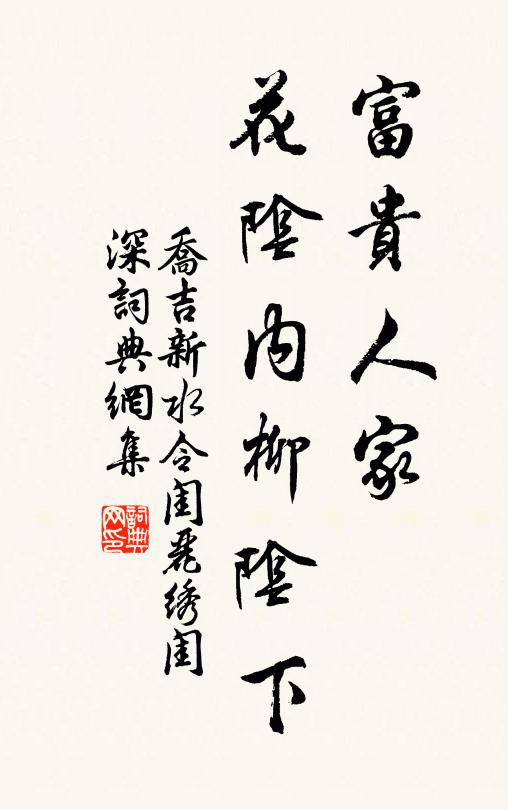 富貴人家
花陰内柳陰下
喬吉新水令閨麗绣閨
深詞典網集
詞典网印